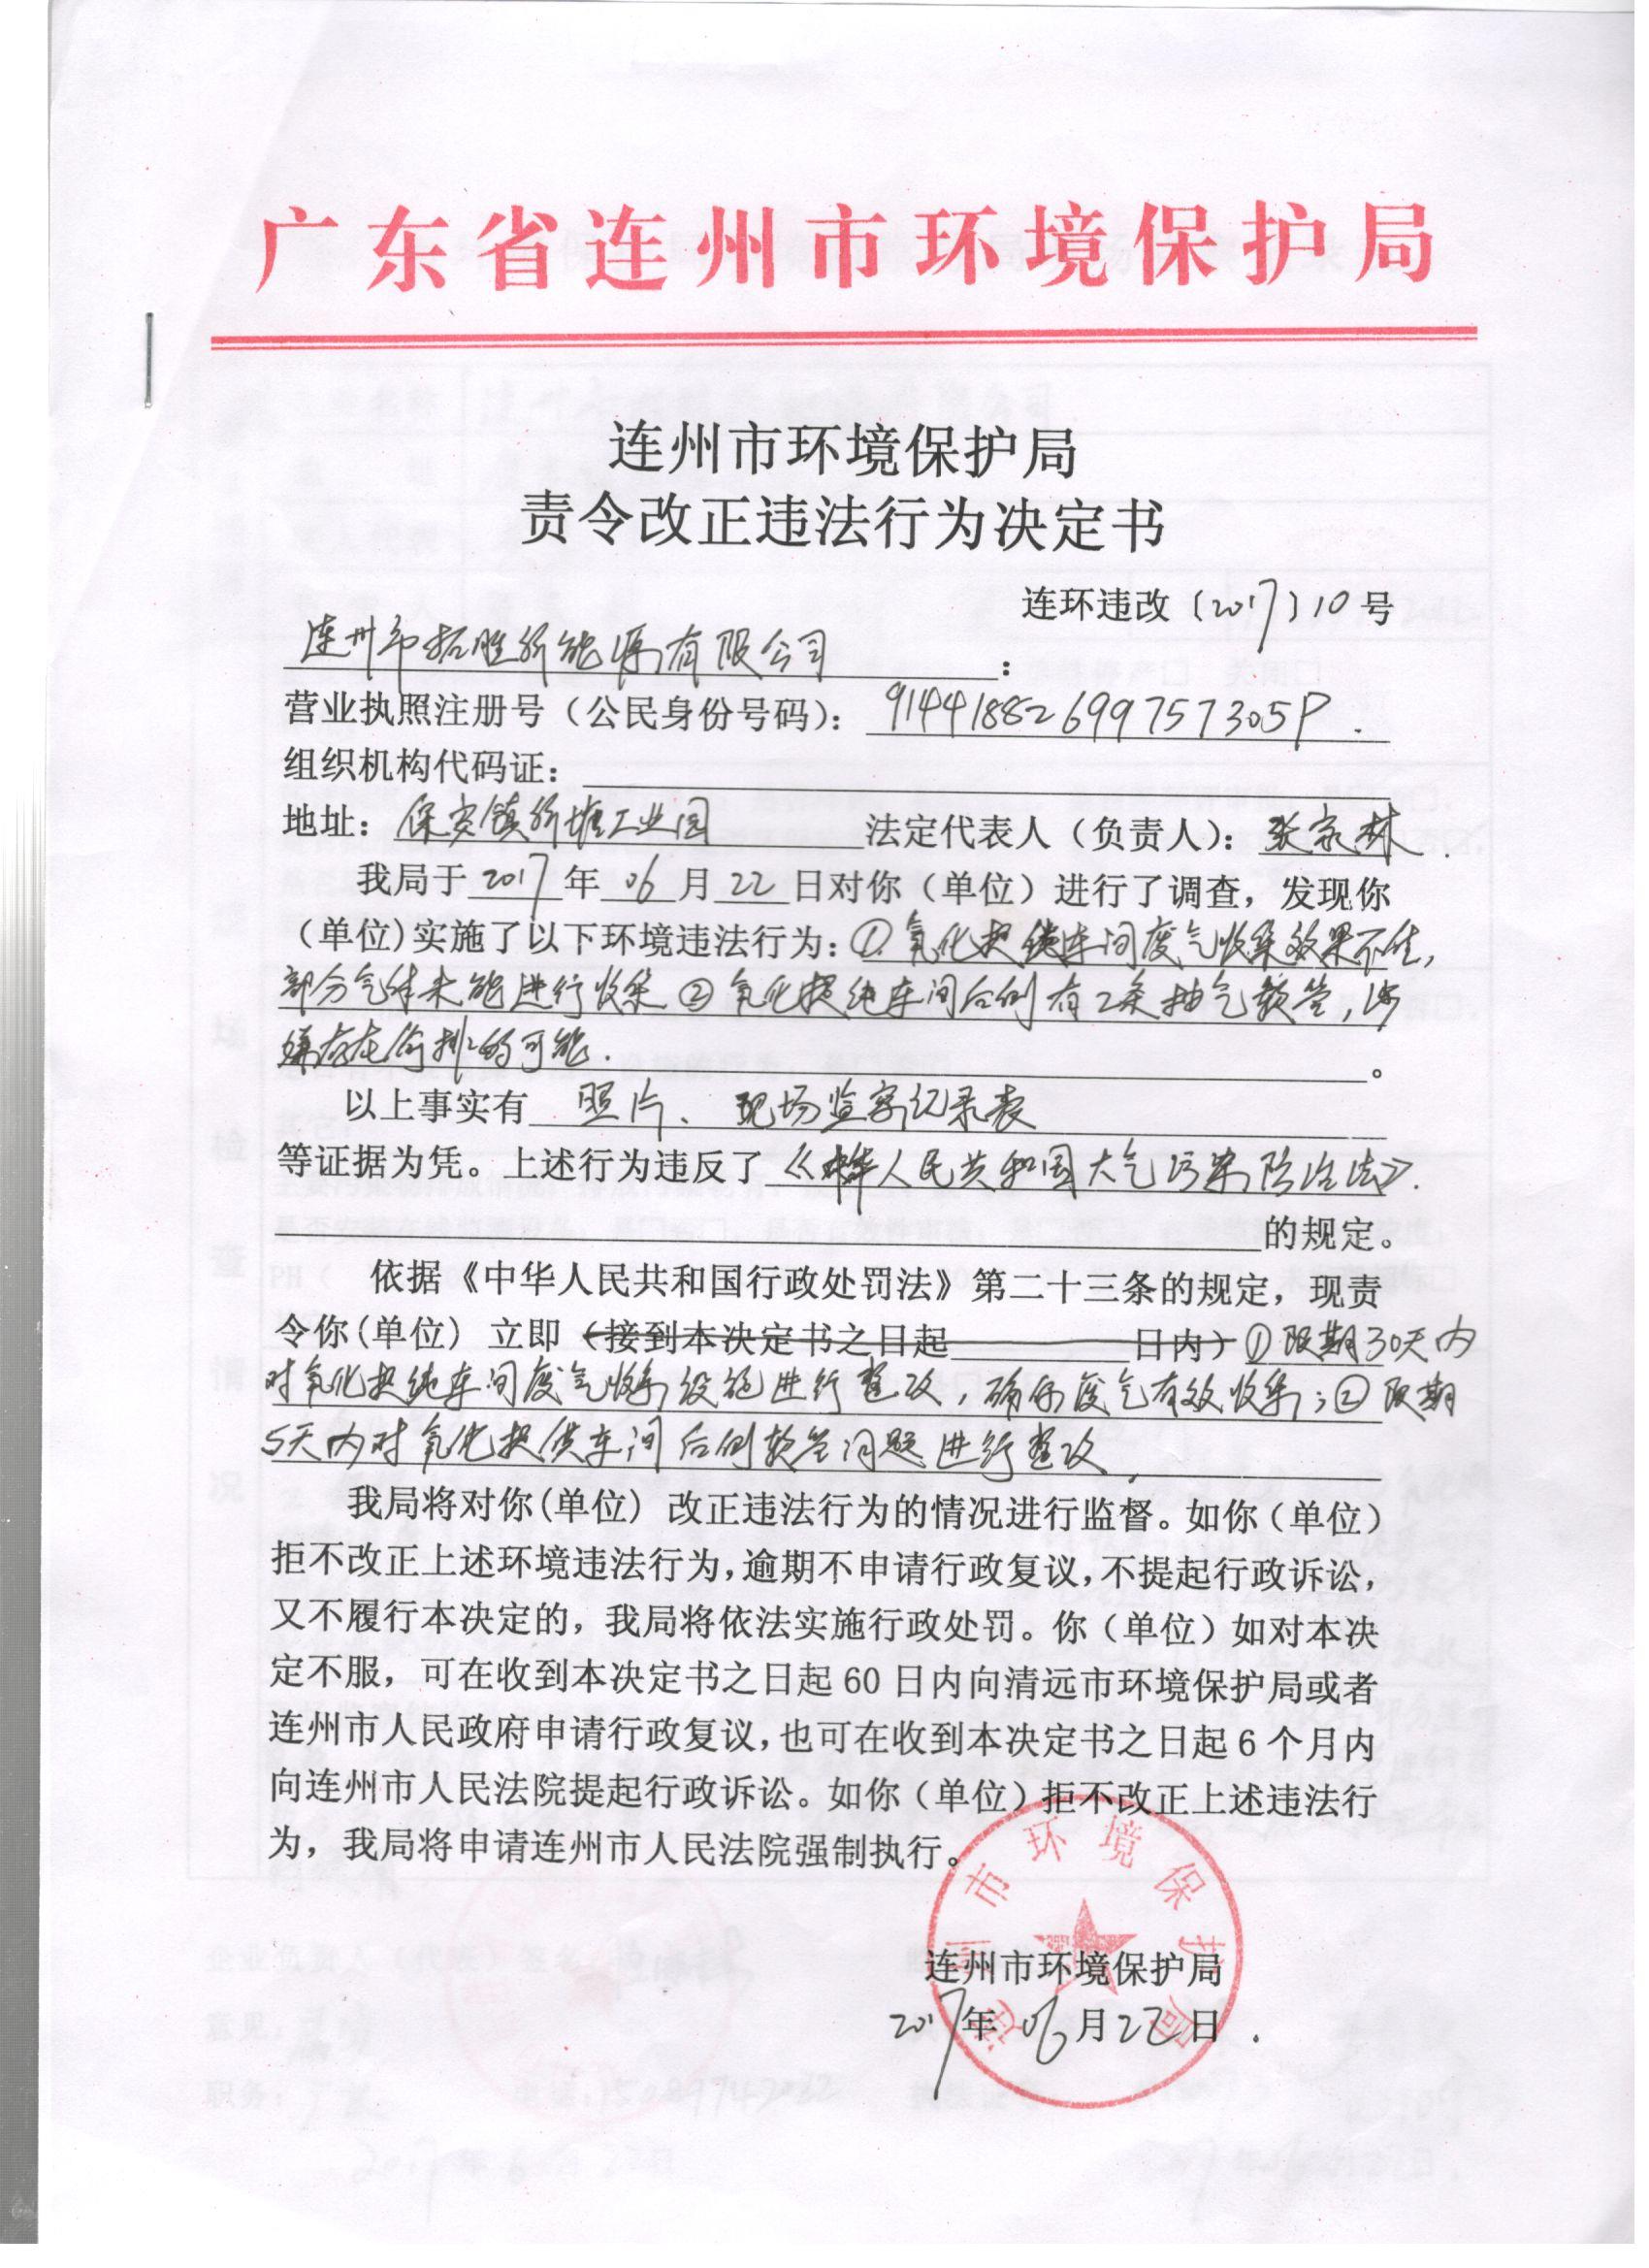 广东省连州市环境保护局
连州市环境保护局
责令改正违法行为决定书
连环违改〔2017〕10号
连州市拓胜新能源有限公司：
营业执照注册号（公民身份号码）：91441882699757305P.
组织机构代码证：
地址：保安镇新塘工业园 法定代表人（负责人）：张家林.
我局于2017年06月22日对你（单位）进行了调查，发现你
（单位)实施了以下环境违法行为：①氧化提纯车间废气收集效果不佳,
部分气体未能进行收集 ②氧化提纯车间后侧有2条抽气软管,涉
嫌存在偷排的可能.。
以上事实有 照片、现场监察记录表
等证据为凭。上述行为违反了《中华人民共和国大气污染防治法》.
的规定。
依据《中华人民共和国行政处罚法》第二十三条的规定，现责
令你(单位) 立即（接到本决定书之日起 日内）①限期30天内
对氧化提纯车间废气收集设施进行整改，确保废气有效收集；②限期
5天内对氧化提纯车间后侧软管问题进行整改.
我局将对你(单位) 改正违法行为的情况进行监督。如你（单位）
拒不改正上述环境违法行为，逾期不申请行政复议，不提起行政诉讼，
又不履行本决定的，我局将依法实施行政处罚。你（单位）如对本决
定不服，可在收到本决定书之日起60日内向清远市环境保护局或者
连州市人民政府申请行政复议，也可在收到本决定书之日起6个月内
向连州市人民法院提起行政诉讼。如你（单位）拒不改正上述违法行
为，我局将申请连州市人民法院强制执行。
连州市环境保护局
连州市环境保护局
2017年06月22日.